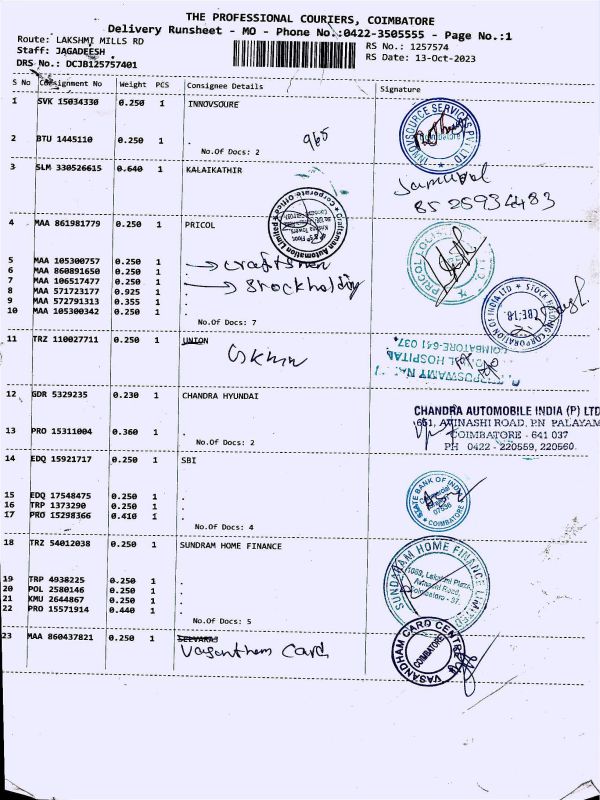 THE PROFESSIONAL COURIERS, COIMBATORE
Delivery Runsheet - MO - Phone No.:0422-3505555 - Page No.:1
Route: LAKSHMI MILLS RD
RS No.: 1257574
Staff: JAGADEESH
RS Date: 13-Oct-2023
DRS No.: DCJB125757401
S No Consignment No Weight PCS Consignee Details Signature
1 SVK 15034330 0.250 1 INNOVSOURE
INNOVSOURCE SERVICES PVT LTD
2 BTU 1445110 0.250 1 .
No.Of Docs: 2
965
3 SLM 330526615 0.640 1 KALAIKATHIR
8525934483
Craftsman Automation Limited
Corporate Office
4 MAA 861981779 0.250 1 PRICOL
5 MAA 105300757 0.250 1 .
6 MAA 860891650 0.250 1 .
7 MAA 106517477 0.250 1 .
8 MAA 571723177 0.925 1 .
9 MAA 572791313 0.355 1 .
10 MAA 105300342 0.250 1 .
No.Of Docs: 7
→ craftsmen
→ Stockholding
STOCK HOLDING CORPORATION OF INDIA LTD
11 TRZ 110027711 0.250 1 UNION
HOSPITAL
COIMBATORE-641 037
12 GDR 5329235 0.230 1 CHANDRA HYUNDAI
CHANDRA AUTOMOBILE INDIA (P) LTD
651, AVINASHI ROAD, P.N PALAYAM
COIMBATORE - 641 037
PH 0422 - 220559, 220560
13 PRO 15311004 0.360 1 .
No.Of Docs: 2
14 EDQ 15921717 0.250 1 SBI
15 EDQ 17548475 0.250 1 .
16 TRP 1373290 0.250 1 .
17 PRO 15298366 0.410 1 .
No.Of Docs: 4
STATE BANK OF INDIA
COIMBATORE
18 TRZ 54012038 0.250 1 SUNDRAM HOME FINANCE
19 TRP 4938225 0.250 1 .
20 POL 2580146 0.250 1 .
21 KMU 2644867 0.250 1 .
22 PRO 15571914 0.440 1 .
No.Of Docs: 5
SUNDARAM HOME FINANCE LIMITED
1089, Lakshmi Plaza,
Avinashi Road,
Coimbatore - 37.
23 MAA 860437821 0.250 1 SELVARAJ
Vasanthem Card
VASANDHAM CARD CENTRE
COIMBATORE